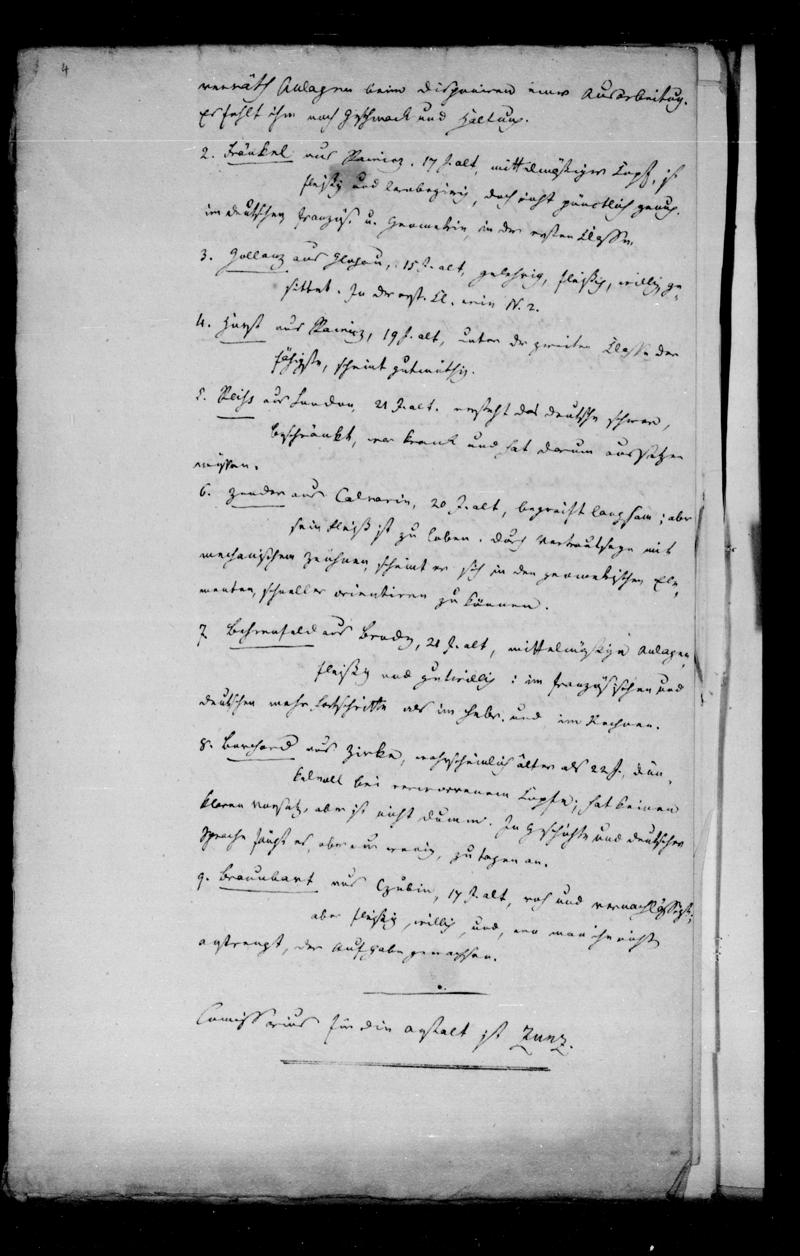 4
verräth Anlagen beim disponiren einer Ausarbeitung.
Es fehlt ihm noch Geschmack und Haltung.
2. Fränkel aus Rawicz. 17 J. alt, mittelmäßiger Kopf, ist
fleißig und lernbegierig, doch nicht pünctlich genug.
im deutschen, französ. u. Geometrie, in der ersten Classe.
3. Gollanz aus Glogau, 15 J. alt, gelehrig, fleißig, willig ge-
sittet. In der erst. Cl. wie N. 2.
4. Hurst aus Rawicz, 19 J. alt, unter der zweiten Classe der
fähigste, scheint gutmüthig.
5. Reiss aus London, 21 J. alt. versteht das deutsche schwer,
beschränkt, war krank und hat darum aussetzen
müssen.
6. Zender aus Calvarin, 20 J. alt, begreift langsam; aber
sein Fleiß ist zu loben. Durch Vertrautseyn mit
mechanischem Zeichnen, scheint er sich in den geometrischen Ele-
menten, schneller orientiren zu können.
7. Behrenfeld aus Brody, 21 J. alt, mittelmäßige Anlagen,
fleißig und gutwillig: im französischen und
deutschen mehr Fortschritte als im hebr. und im Rechnen.
8. Borchard aus Zirke, wahrscheinlich älter als 22 J., dün-
kelvoll bei verworrenem Kopfe; hat keinen
klaren Vorsatz, aber ist nicht dumm. In Geschichte und deutscher
Sprache fängt es, aber nur wenig, zu tagen an.
9. Braunbart aus Czubin, 17 J. alt, roh und vernachlässigt;
aber fleißig, willig, und, wen man ihn nicht
anstrengt, der Aufgabe gewachsen.
Comissarius für die Anstalt ist Zunz.